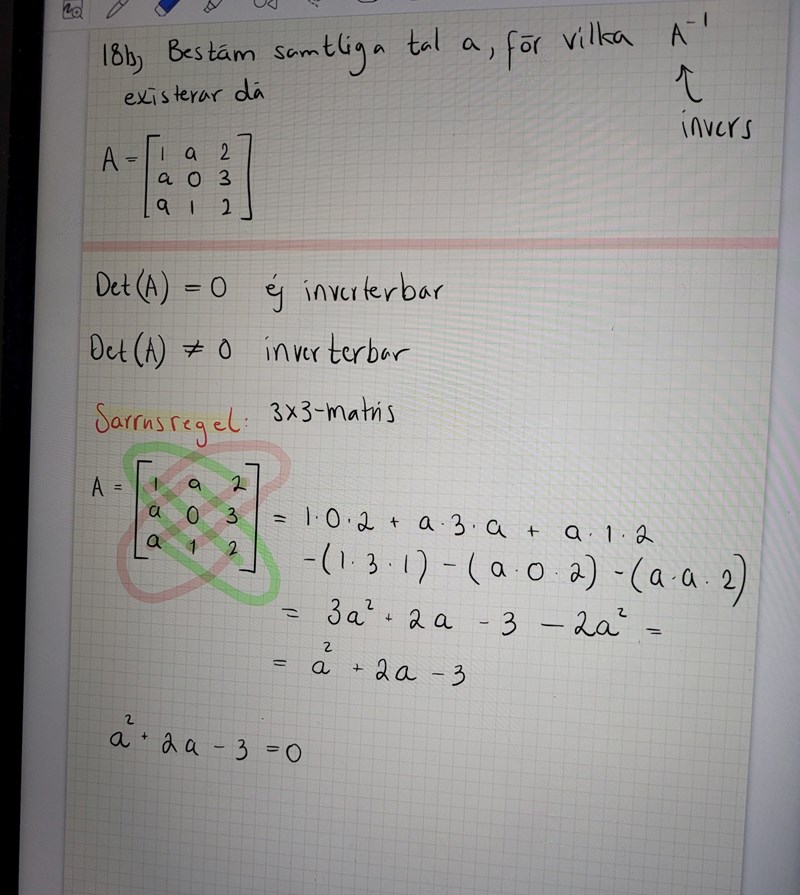 18b) Bestäm samtliga tal a, för vilka A⁻¹
existerar då
↑
invers
A = [1 a 2
a 0 3
a 1 2]
Det(A) = 0 ej inverterbar
Det(A) ≠ 0 inverterbar
Sarrusregel: 3x3-matris
A = [1 a 2
a 0 3
a 1 2] = 1·0·2 + a·3·a + a·1·2
-(1·3·1) - (a·0·2) - (a·a·2)
= 3a² + 2a - 3 - 2a² =
= a² + 2a - 3
a² + 2a - 3 = 0